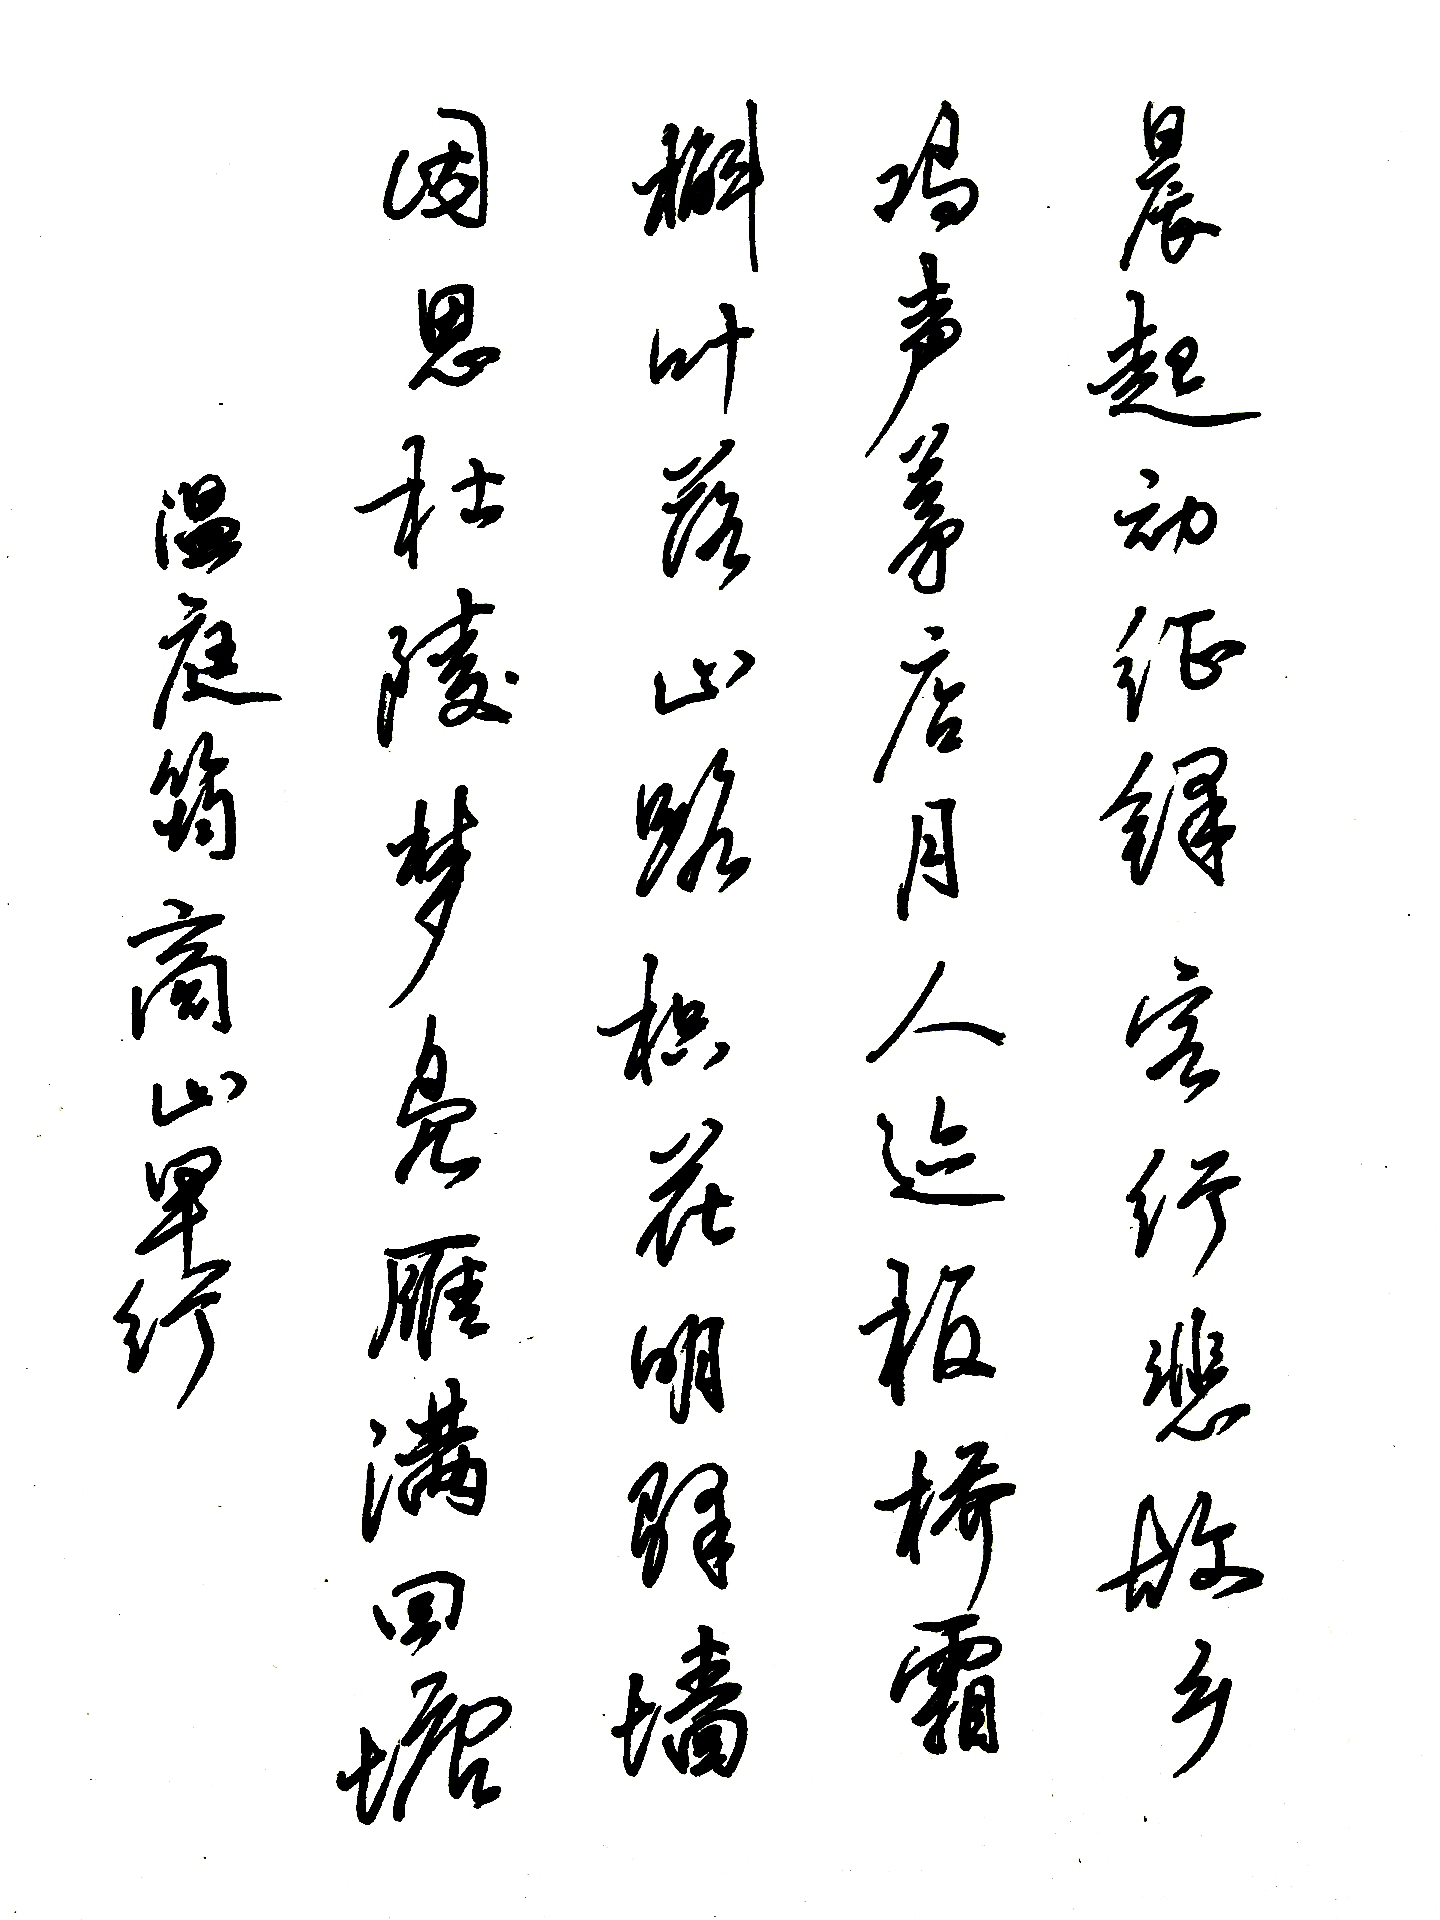 晨起动征铎客行悲故乡
鸡声茅店月人迹板桥霜
槲叶落山路枳花明驿墙
因思杜陵梦凫雁满回塘
温庭筠商山早行